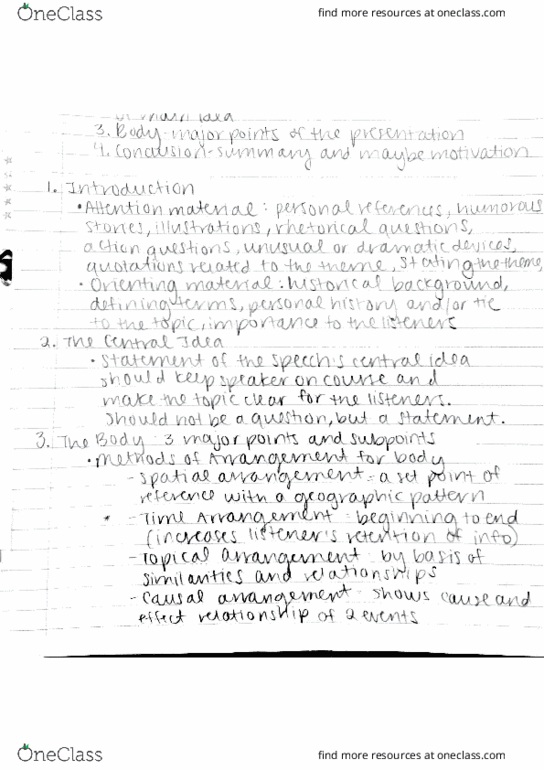 OneClass
find more resources at oneclass.com
or main idea
3. Body-major points of the presentation
4. Conclusion-summary and maybe motivation
1. Introduction
• Attention material: personal references, humorous
stories, illustrations, rhetorical questions,
action questions, unusual or dramatic devices,
quotations related to the theme, stating the theme,
• Orienting material: historical background,
defining terms, personal history and/or tie
to the topic, importance to the listeners
2. The Central Idea
• Statement of the speech's central idea
should keep speaker on course and
make the topic clear for the listeners.
Should not be a question, but a statement.
3. The Body: 3 major points and subpoints
• Methods of Arrangement for body
- Spatial arrangement - a set point of
reference with a geographic pattern
- Time Arrangement: beginning to end
(increases listener's retention of info)
- Topical arrangement: by basis of
similarities and relationships
- Causal arrangement: shows cause and
effect relationship of 2 events
OneClass
find more resources at oneclass.com